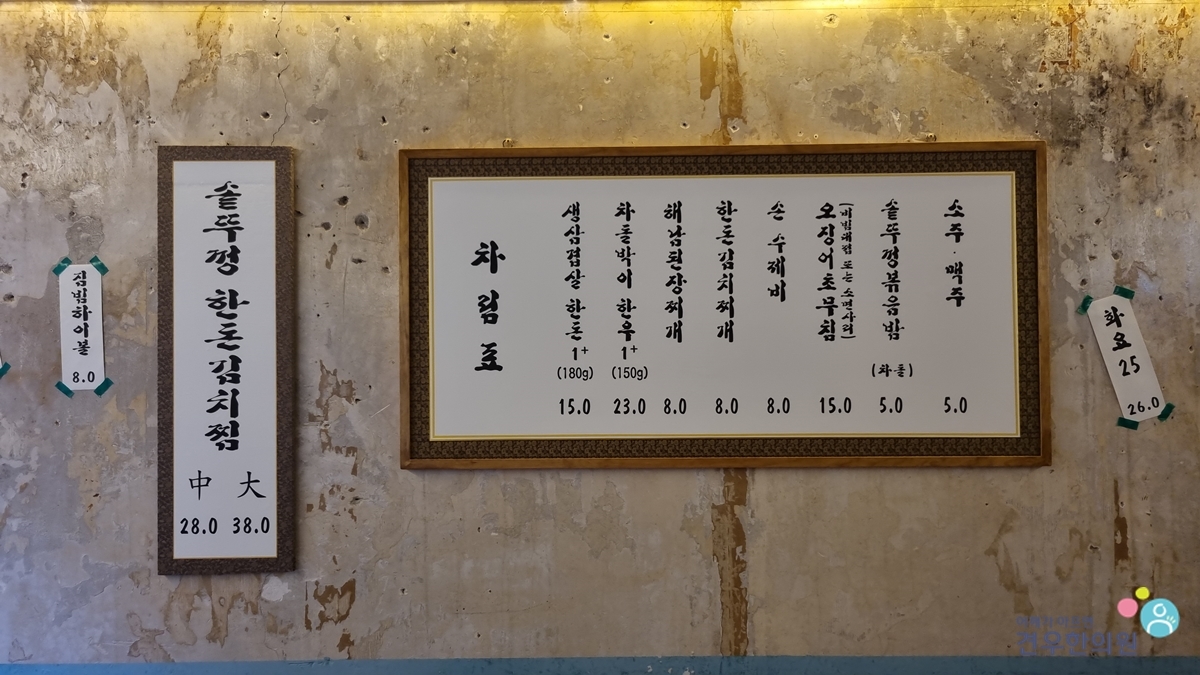 짐빔하이볼
8.0
솥뚜껑 한돈김치찜
中 28.0
大 38.0
차림표
생삼겹살 한돈 1+ (180g) 15.0
차돌박이 한우 1+ (150g) 23.0
해남된장찌개 8.0
한돈김치찌개 8.0
손 수제비 8.0
오징어초무침 15.0
솥뚜껑볶음밥 (차돌) 5.0
소주·맥주 5.0
화요 25
26.0